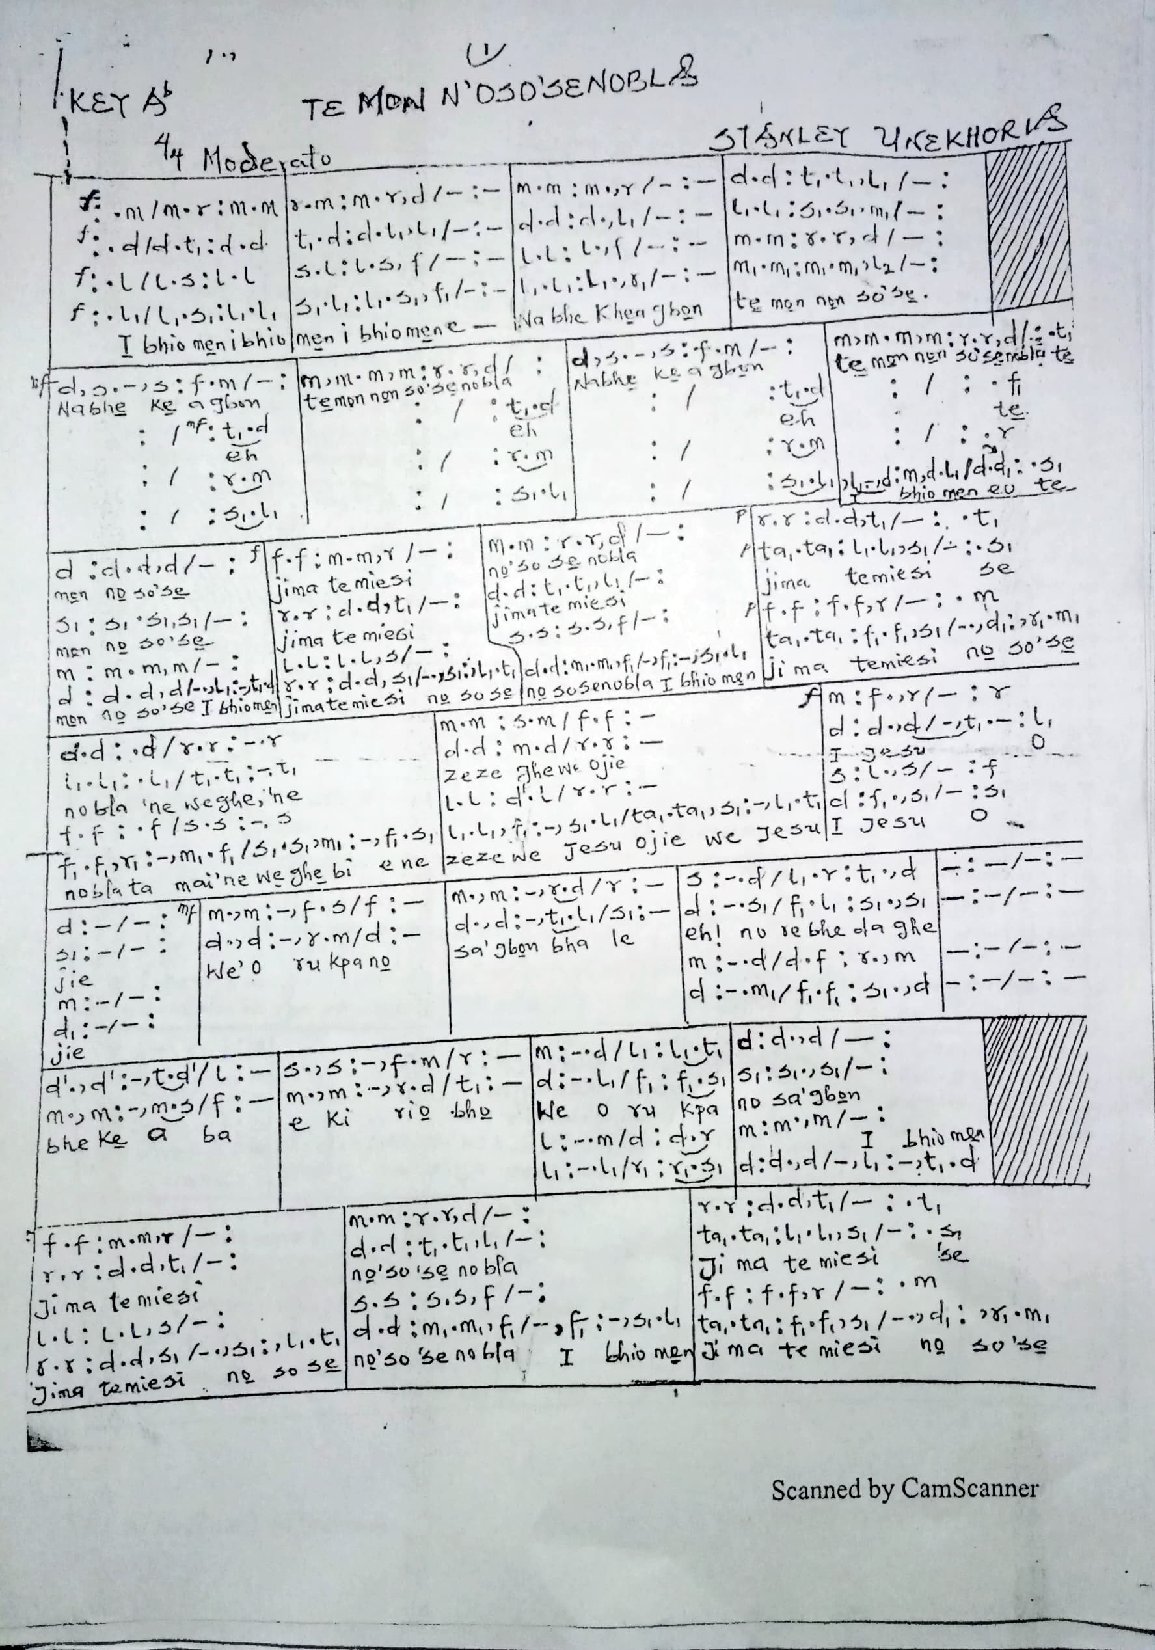 (1)
KEY Ab
TE MON N'OSO'SENOBLA
4/4 Moderato
STANLEY UNEKHORIA
f: .m/m.r:m.m | r.m:m.r,d/-:- | m.m:m.,r/-:- | d.d:t₁.t₁,l₁/-:
f: .d/d.t₁:d.d | t₁.d:d.l₁,l₁/-:- | d.d:d.,l₁/-:- | l₁.l₁:s₁.s₁,m₁/-:
f: .l/l.s:l.l | s.l:l.s,f/-:- | l.l:l.,f/-:- | m.m:r.r,d/-:
f: .l₁/l₁.s₁:l₁.l₁ | s₁.l₁:l₁.s₁,f₁/-:- | l₁.l₁:l₁.,r₁/-:- | m₁.m₁:m₁.m₁,l₂/-:
I bhio men i bhio | men i bhiomene — | Na bhe Khea gbon | te mon non so'se.
mf d,s.-,s:f.m/-: | m,m.m,m:r.r,d/ : | d,s.-,s:f.m/-: | m,m.m,m:r.r,d/:.t₁
Nabhe ke a gbon | temon non so'senobla | Nabhe ke a gbon | te mon non so'senobla te
: / mf: t₁.d | : / : t₁.d | : / : t₁.d | : / : .f₁
eh | eh | eh | te
: / : r.m | : / : r.m | : / : r.m | : / : .r
: / : s₁.l₁ | : / : s₁.l₁ | : / : s₁.l₁,l₁-,d:m,d.l₁/d.d₁:.s₁
I bhio men eu te
d:d.d,d/-: | f f.f:m.m,r/-: | m.m:r.r,d/-: | p r.r:d.d,t₁/-:.t₁
men no so'se | jima te miesi | no'so se nobla | p ta₁.ta₁:l₁.l₁,s₁/-:.s₁
s₁:s₁.s₁,s₁/-: | r.r:d.d,t₁/-: | d.d:t₁.t₁,l₁/-: | jima temiesi se
men no so'se | jima te miesi | jimate miesi | p f.f:f.f,r/-:.m
m:m.m,m/-: | l.l:l.l,s/-: | s.s:s.s,f/-: | ta₁.ta₁:f₁.f₁,s₁/-.,d₁:,r₁.m₁
d:d.d,d/-,l₁:-,t₁.d | r.r:d.d,s₁/-.,s₁:,l₁.t₁ | d.d:m₁.m₁,f₁/-,f₁:-,s₁.l₁ | ji ma temiesi no so'se
men no so'se I bhiomen | jimate miesi no so se | no sosenobla I bhio men
d.d:.d/r.r:-.r | m.m:s.m/f.f:- | f m:f.,r/-:r
l₁.l₁:.l₁/t₁.t₁:-.t₁ | d.d:m.d/r.r:- | d:d.,d/-,t₁.-:l₁
nobla 'ne weghe,'ne | zeze ghewe ojie | I Jesu O
f.f:.f/s.s:-.s | l.l:d'.l/r.r:- | s:l.,s/-:f
f₁.f₁,r₁:-,m₁.f₁/s₁.s₁,m₁:-,f₁.s₁ | l₁.l₁,f₁:-,s₁.l₁/ta₁.ta₁,s₁:-,l₁.t₁ | d:f₁.,s₁/-:s₁
noblata mai'ne weghe bi e ne | zeze we Jesu ojie we Jesu | I Jesu O
d:-/-: | mf m.,m:-,f.s/f:- | m.,m:-,r.d/r:- | s:-.d/l₁.r:t₁.,d | -:-/-:-
s₁:-/-: | d.,d:-,r.m/d:- | d.,d:-,t₁.l₁/s₁:- | d:-.s₁/f₁.l₁:s₁.,s₁ | -:-/-:-
jie | We'o ru kpa no | sa'gbon bha le | eh! no re bhe da ghe
m:-/-: | m:-.d/d.f:r.,m | -:-/-:-
d₁:-/-: | d:-.m₁/f₁.f₁:s₁.,d | -:-/-:-
jie
d'.,d':-,t.d'/l:- | s.,s:-,f.m/r:- | m:-.d/l₁:l₁.t₁ | d:d.,d/-:
m.,m:-,m.s/f:- | m.,m:-,r.d/t₁:- | d:-.l₁/f₁:f₁.s₁ | s₁:s₁.,s₁/-:
bhe ke a ba | e ki rio bho | We o ru kpa | no sa'gbon
l:-.m/d:d.r | m:m.,m/-:
I bhio men
l₁:-.l₁/r₁:r₁.s₁ | d:d.,d/-,l₁:-,t₁.d
f.f:m.m,r/-: | m.m:r.r,d/-: | r.r:d.d,t₁/-:.t₁
r.r:d.d,t₁/-: | d.d:t₁.t₁,l₁/-: | ta₁.ta₁:l₁.l₁,s₁/-:.s₁
Jima te miesi | no'so'se nobla | Ji ma te miesi 'se
l.l:l.l,s/-: | s.s:s.s,f/-: | f.f:f.f,r/-:.m
r.r:d.d,s₁/-.,s₁:,l₁.t₁ | d.d:m₁.m₁,f₁/-,f₁:-,s₁.l₁ | ta₁.ta₁:f₁.f₁,s₁/-.,d₁:,r₁.m₁
Jima temiesi no so se | no'so'se nobla I bhio men | Ji ma te miesi no so'se
Scanned by CamScanner